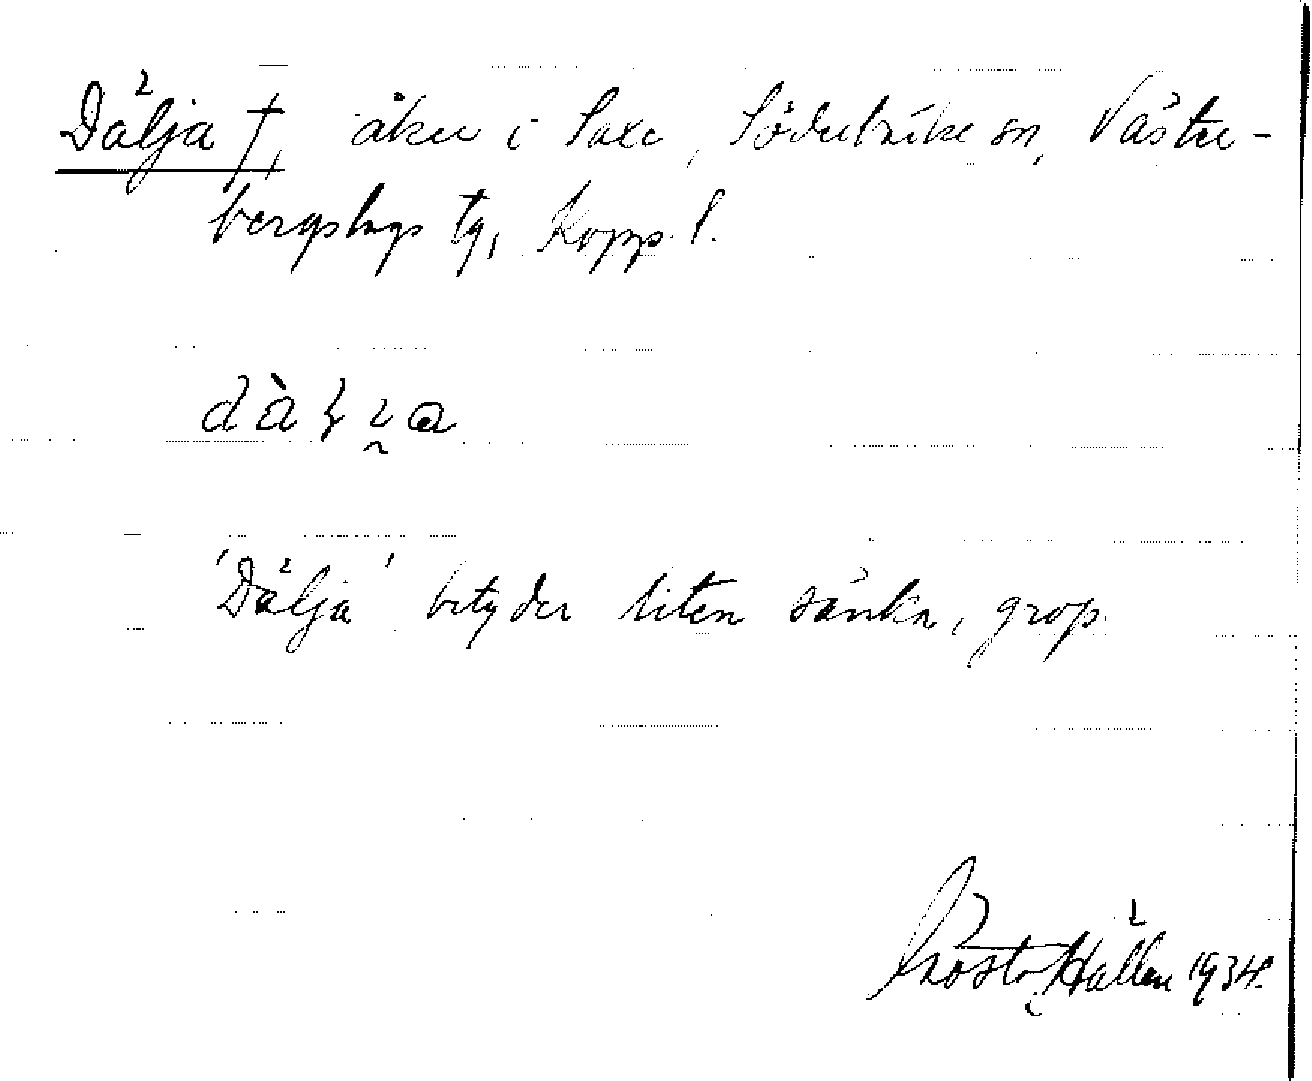 Dälja †, åker i Saxe, Söderbärke sn, Väster-
bergslags tg, Kopp. l.
'Dälja' betyder liten sänka, grop.
Gösta Hallén 1934.